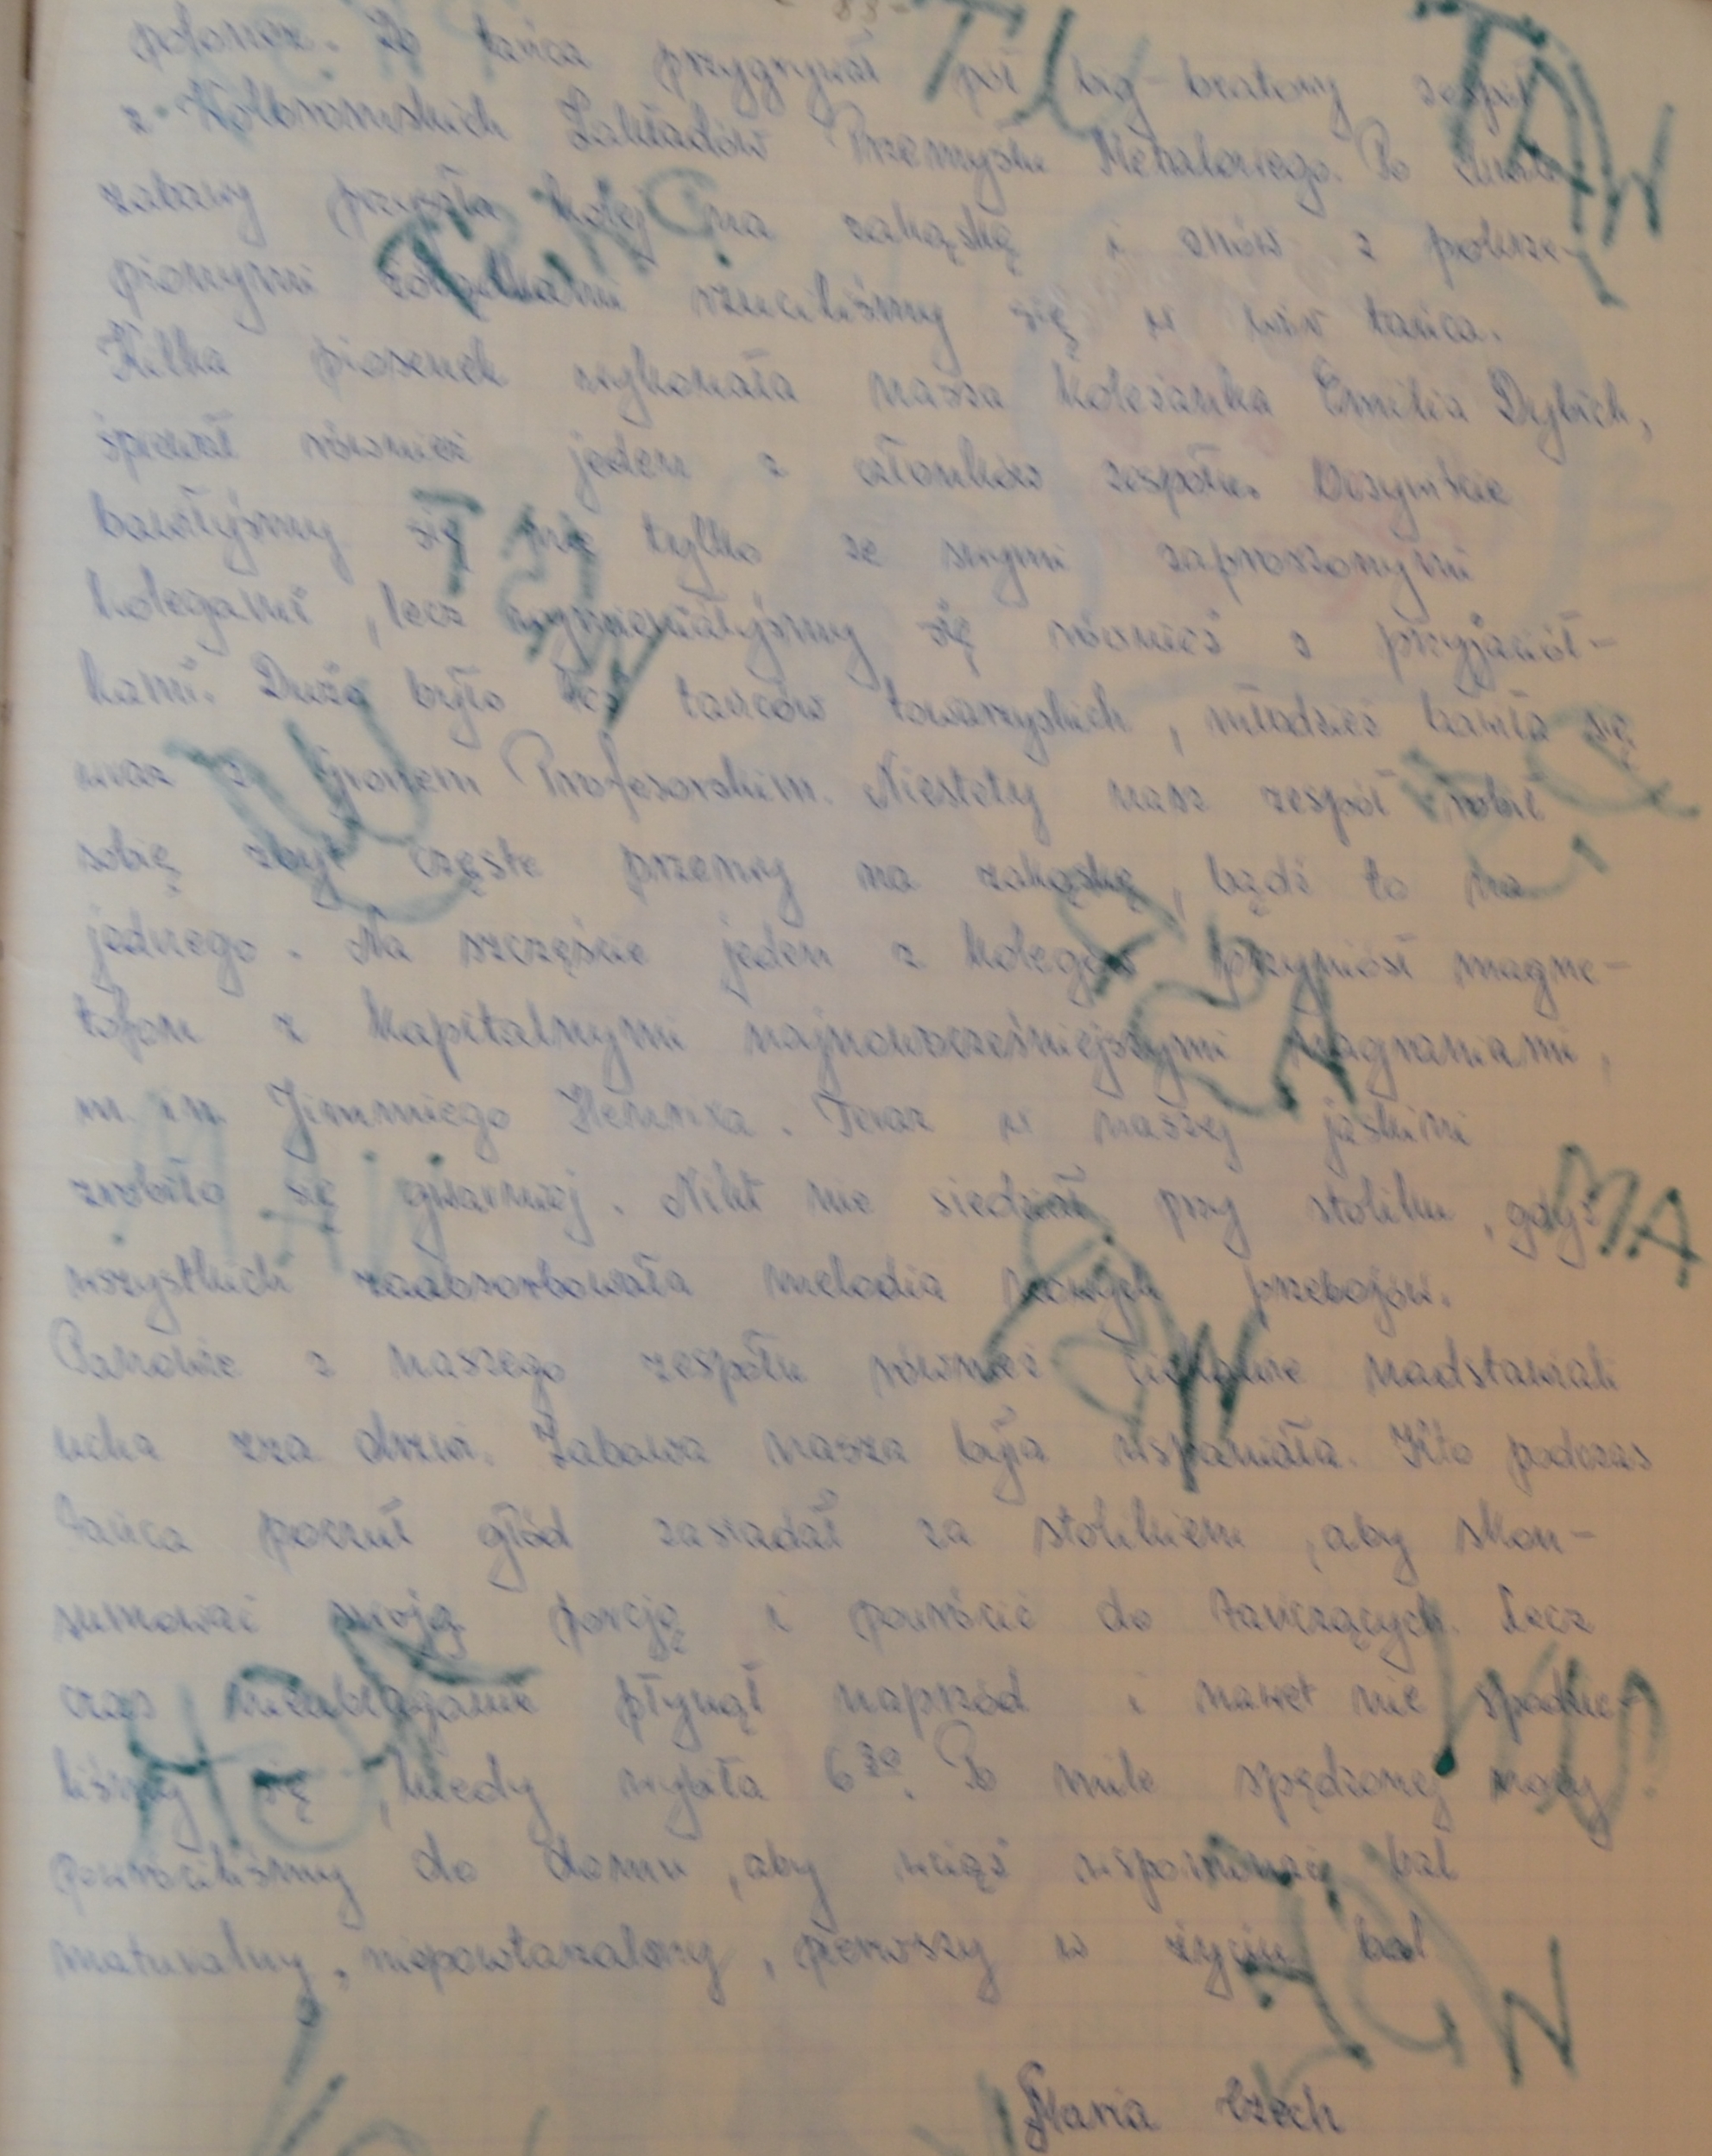 - 83 -
polonez. Do tańca przygrywał pół big-beatowy zespół
z Kolbromskich Zakładów Przemysłu Metalowego. Po
zabawy przyszła kolej na zakąskę i znów z pokrze-
pionymi żołądkami rzuciliśmy się w wir tańca.
Kilka piosenek wykonała nasza koleżanka Emilia Dybich,
śpiewał również jeden z członków zespołu. Oczywiście
bawiłyśmy się nie tylko ze swymi zaproszonymi
kolegami, lecz wymieniałyśmy się również z przyjaciół-
kami. Dużo było też tańców towarzyskich, młodzież bawiła się
wraz z Gronem Profesorskim. Niestety nasz zespół robił
sobie zbyt częste przerwy na zakąskę, bądź to na
jednego. Na szczęście jeden z kolegów przyniósł magne-
tofon z kapitalnymi najnowocześniejszymi nagraniami,
m. in. Jimmiego Hendrixa. Teraz w naszej jaskini
zrobiło się gwarniej. Nikt nie siedział przy stoliku, gdyż
wszystkich zaabsorbowała melodia nowych przebojów.
Panowie z naszego zespołu również ciekawie nadstawiali
ucha zza drzwi. Zabawa nasza była wspaniała. Kto podczas
tańca poczuł głód zasiadał za stolikiem, aby skon-
sumować swoją porcję i powrócić do tańczących. Lecz
czas nieubłaganie płynął naprzód i nawet nie spodzie-
liśmy się, kiedy wybiła 6³⁰. Po mile spędzonej nocy
powróciliśmy do domu, aby wciąż wspominać bal
maturalny, niepowtarzalny, pierwszy w życiu bal
Maria Czech